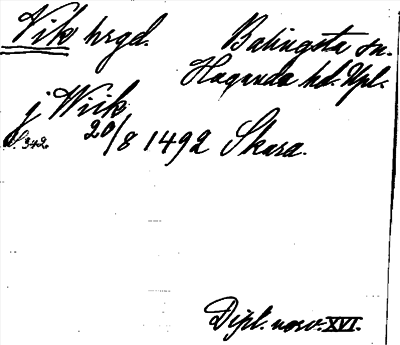 Vik hrgd. Balingsta sn.
Hagunda hd. Upl.
j Wiik
S. 342 20/8 1492 Skara.
Dipl. norv. XVI.